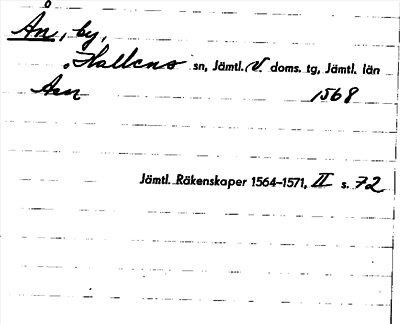 Ån, by,
Hallens sn, Jämtl. V. doms. tg, Jämtl. län
Aan 1568
Jämtl. Räkenskaper 1564–1571, II s. 72